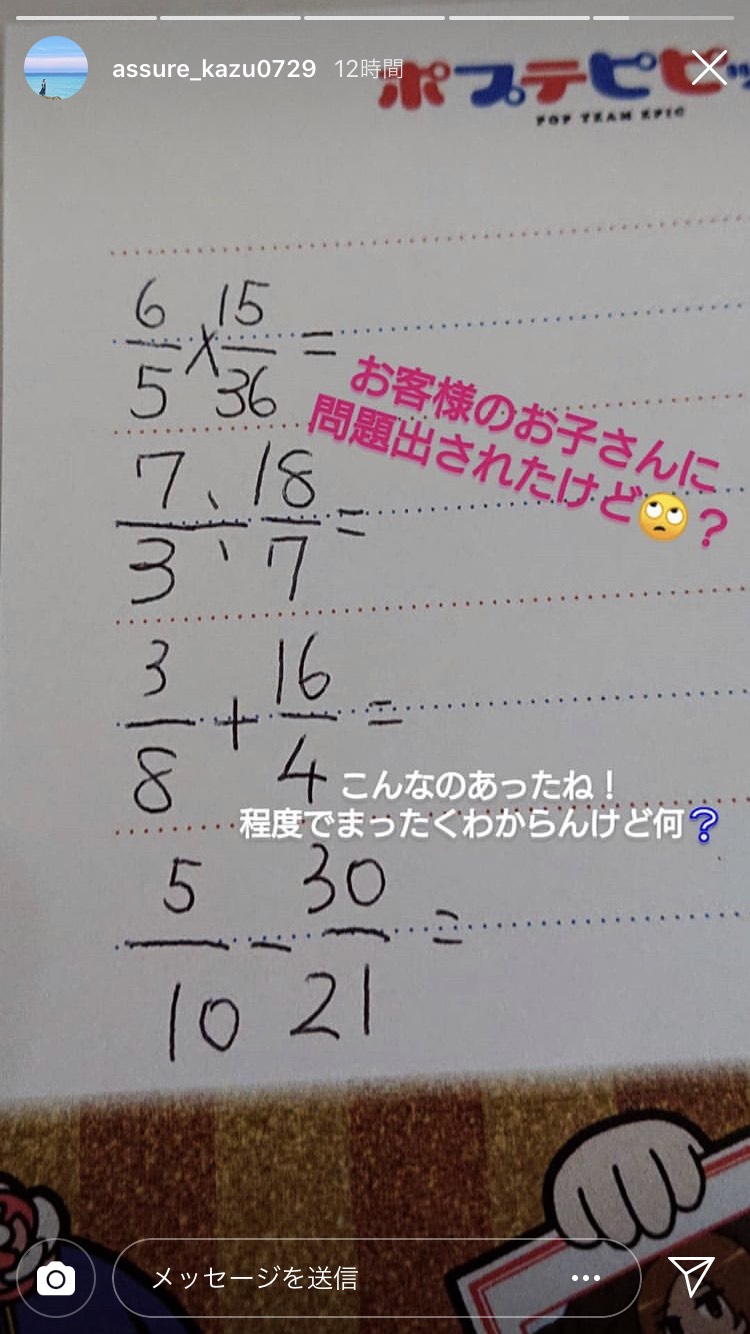 assure_kazu0729 12時間
ポプテピピッ
POP TEAM EPIC
6/5 × 15/36 =
お客様のお子さんに
問題出されたけど🙄?
7/3 ÷ 18/7 =
3/8 + 16/4 =
こんなのあったね!
程度でまったくわからんけど何?
5/10 - 30/21 =
メッセージを送信